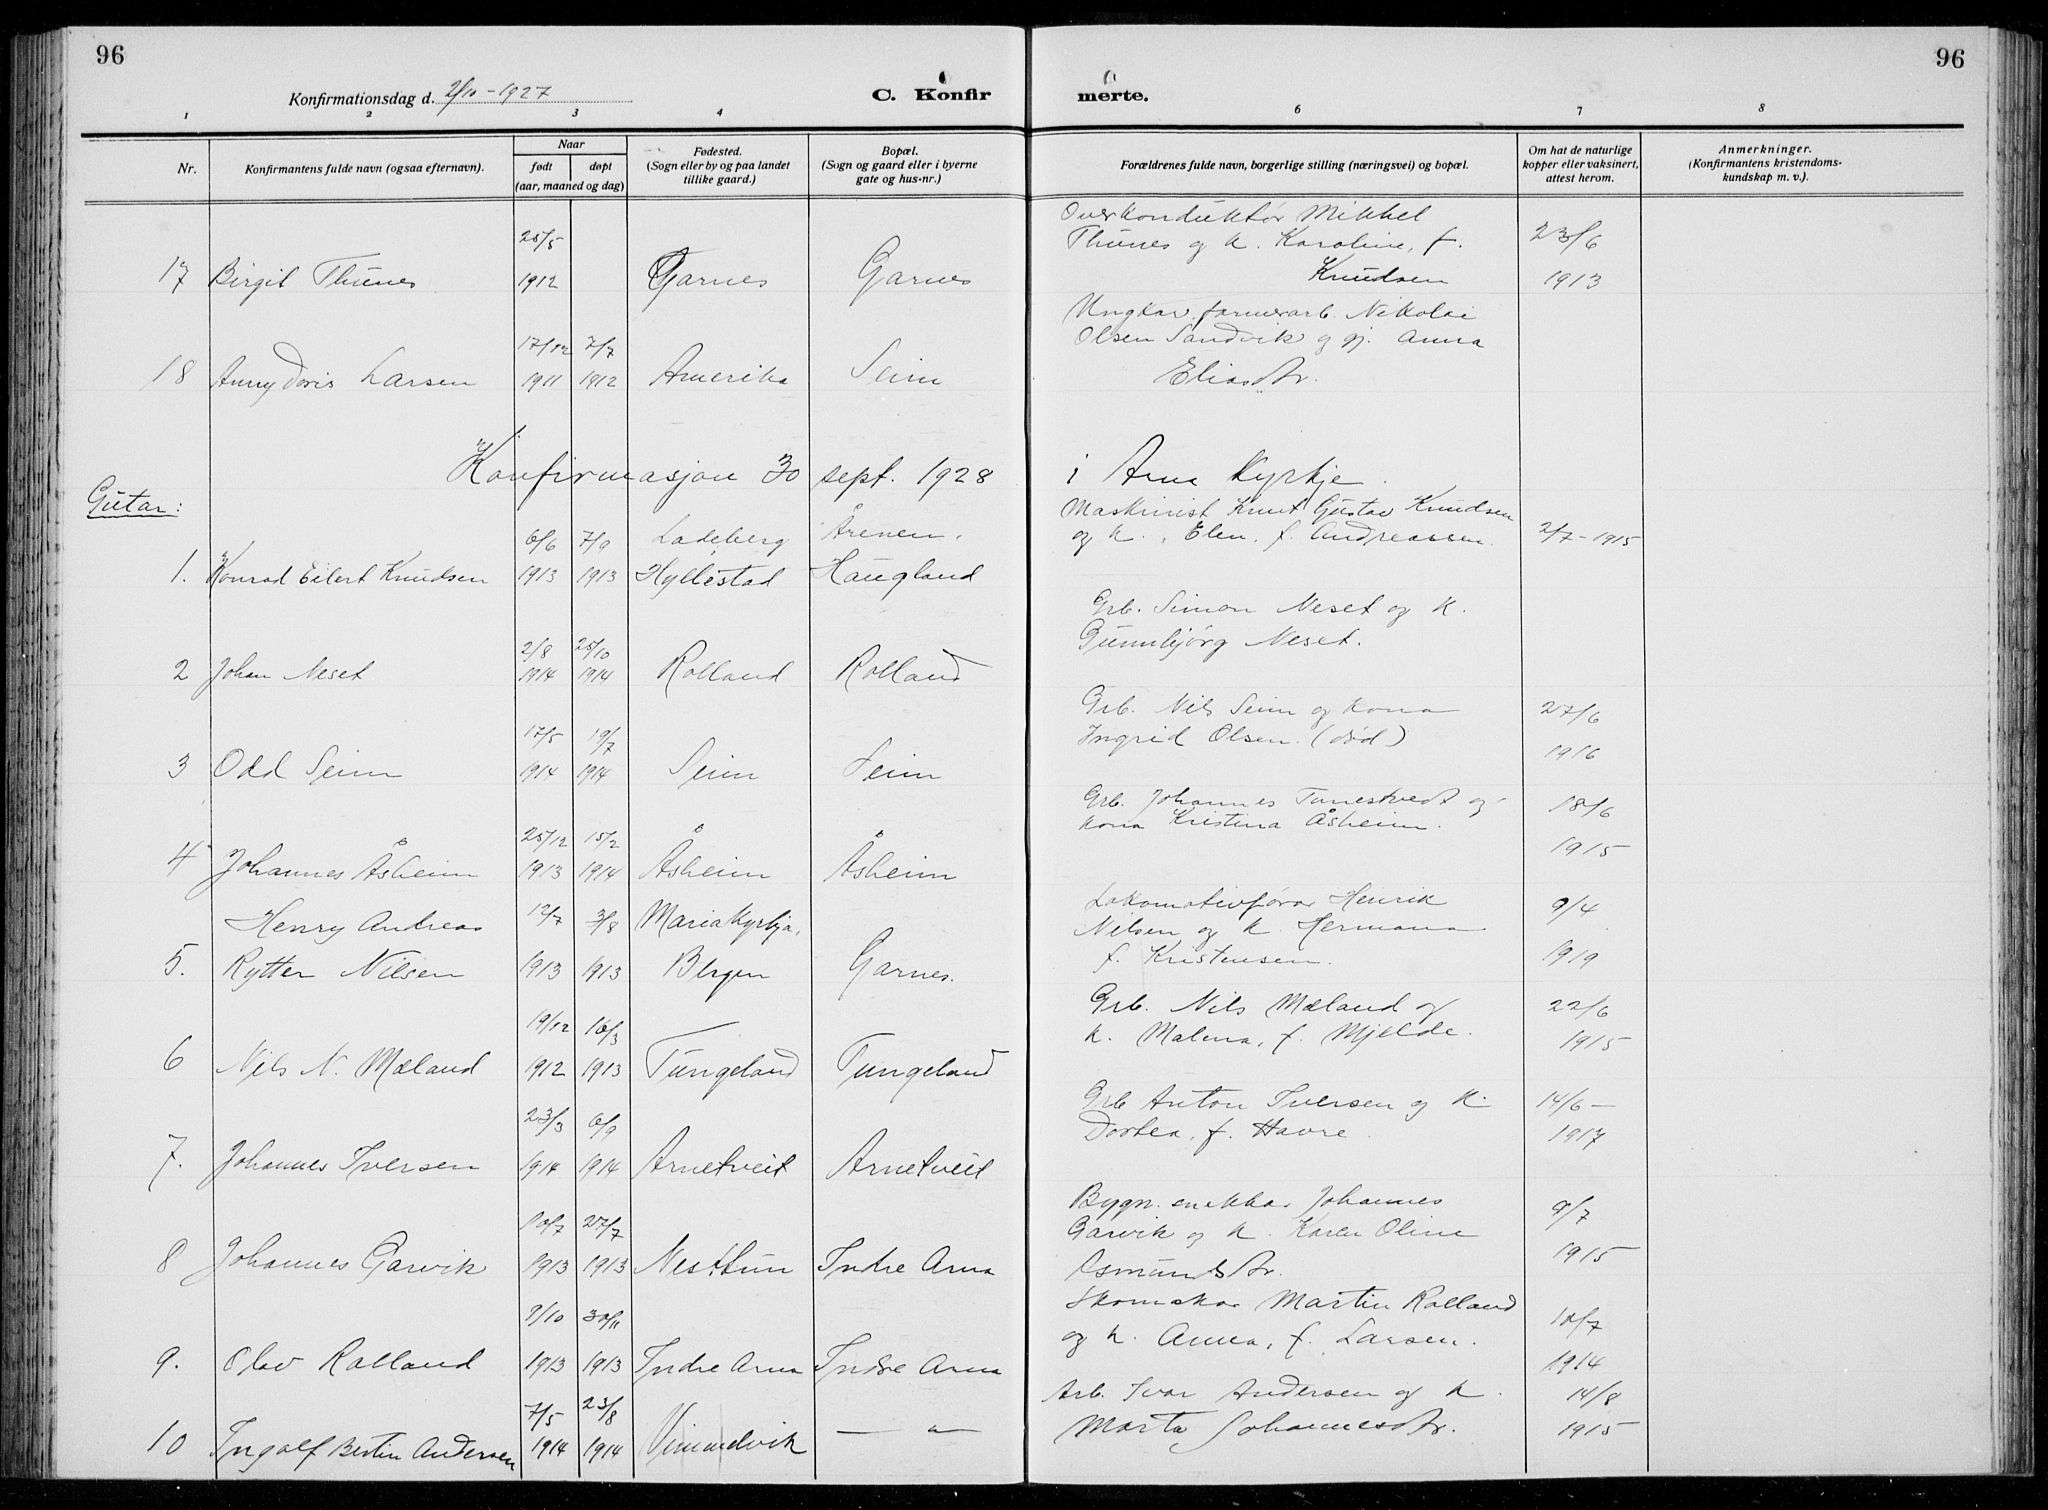 96
96
Konfirmationsdag d. 2/10 - 1927
C. Konfir
merte.
1 2 3 4 6 7 8
Nr.
Konfirmantens fulde navn (ogsaa efternavn).
Naar
født
døpt
(aar, maaned og dag)
Fødested.
(Sogn eller by og paa landet
tillike gaard.)
Bopæl.
(Sogn og gaard eller i byerne
gate og hus-nr.)
Forældrenes fulde navn, borgerlige stilling (næringsvei) og bopæl.
Om hat de naturlige
kopper eller vaksinert,
attest herom.
Anmerkninger.
(Konfirmantens kristendoms-
kundskap m. v.).
25/5
17 Birgit Thunes 1912 Garnes Garnes
Overkonduktør Mikkel
Thunes og k. Karoline, f.
Knudsen
23/6
1913
17/12 7/7
18 Anny Doris Larsen 1911 1912 Amerika Seim
Ungkar, formerarb. Nikolai
Olsen Sandvik og gj. Anna
Eliasdtr.
Konfirmasjon 30 sept. 1928 i Arna Kyrkje.
Gutar:
6/6 7/9 Ladeberg Årenen,
1. Konrad Eilert Knudsen 1913 1913 Hyllestad Haugland
Maskinist Knut Gustav Knudsen
og k. Elen, f. Andreassen.
2/7 - 1915
2/8 25/10
2 Johan Neset 1914 1914 Rolland Rolland
Grb. Simon Neset og k.
Gunnbjörg Neset.
17/5 19/7
3 Odd Seim 1914 1914 Seim Seim
Grb. Nils Seim og kona
Ingrid Olsen. (död)
27/6
1916
25/12 15/2
4 Johannes Åsheim 1913 1914 Åsheim Åsheim
Grb. Johannes Tunestvedt og
kona Kristina Åsheim.
18/6
1915
Henry Andreas 12/7 3/8 Mariakyrkja,
5. Rytter Nilsen 1913 1913 Bergen Garnes.
Lokomotivförar Henrik
Nilsen og k. Hermana
f. Kristensen.
9/4
1919
19/12 16/3
6 Nils N. Mæland 1912 1913 Tungeland Tungeland
Grb. Nils Mæland og
k. Malena, f. Mjelde.
22/6
1915
23/3 6/9
7. Johannes Iversen 1914 1914 Arnetveit Arnetveit
Grb Anton Iversen og k.
Dortea, f. Havre.
14/6 -
1917
10/7 27/7
8 Johannes Garvik 1913 1913 Nesttun Indre Arna
Bygn. snekkar Johannes
Garvik og k. Karen Oline
Asmundsdtr.
9/7
1915
9/10 30/11
9. Olav Rolland 1913 1913 Indre Arna Indre Arna
Skomakar Martin Rolland
og k. Anna, f. Larsen.
10/7
1914
7/5 23/8
10 Ingolf Bertin Andersen 1914 1914 Vimmelvik — " —
Arb. Ivar Andersen og k.
Marta Johannesdtr.
14/8
1915